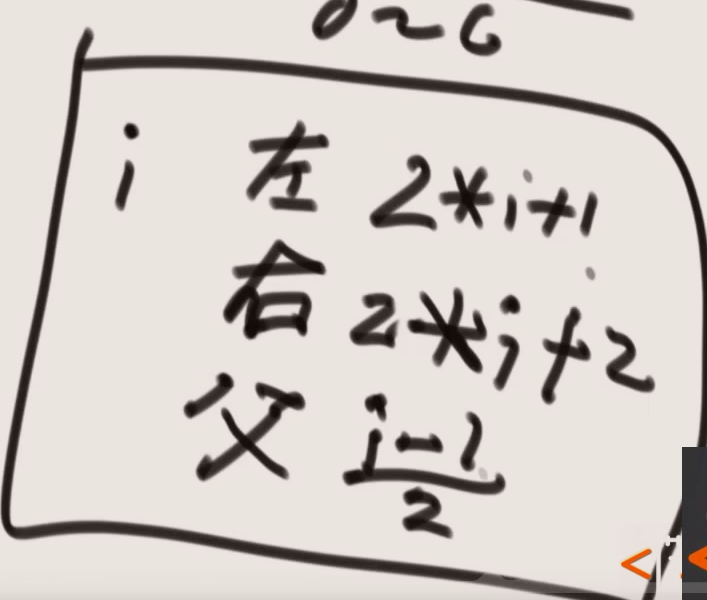 0~6
i 左 2*i+1
右 2*i+2
父 i-1
2